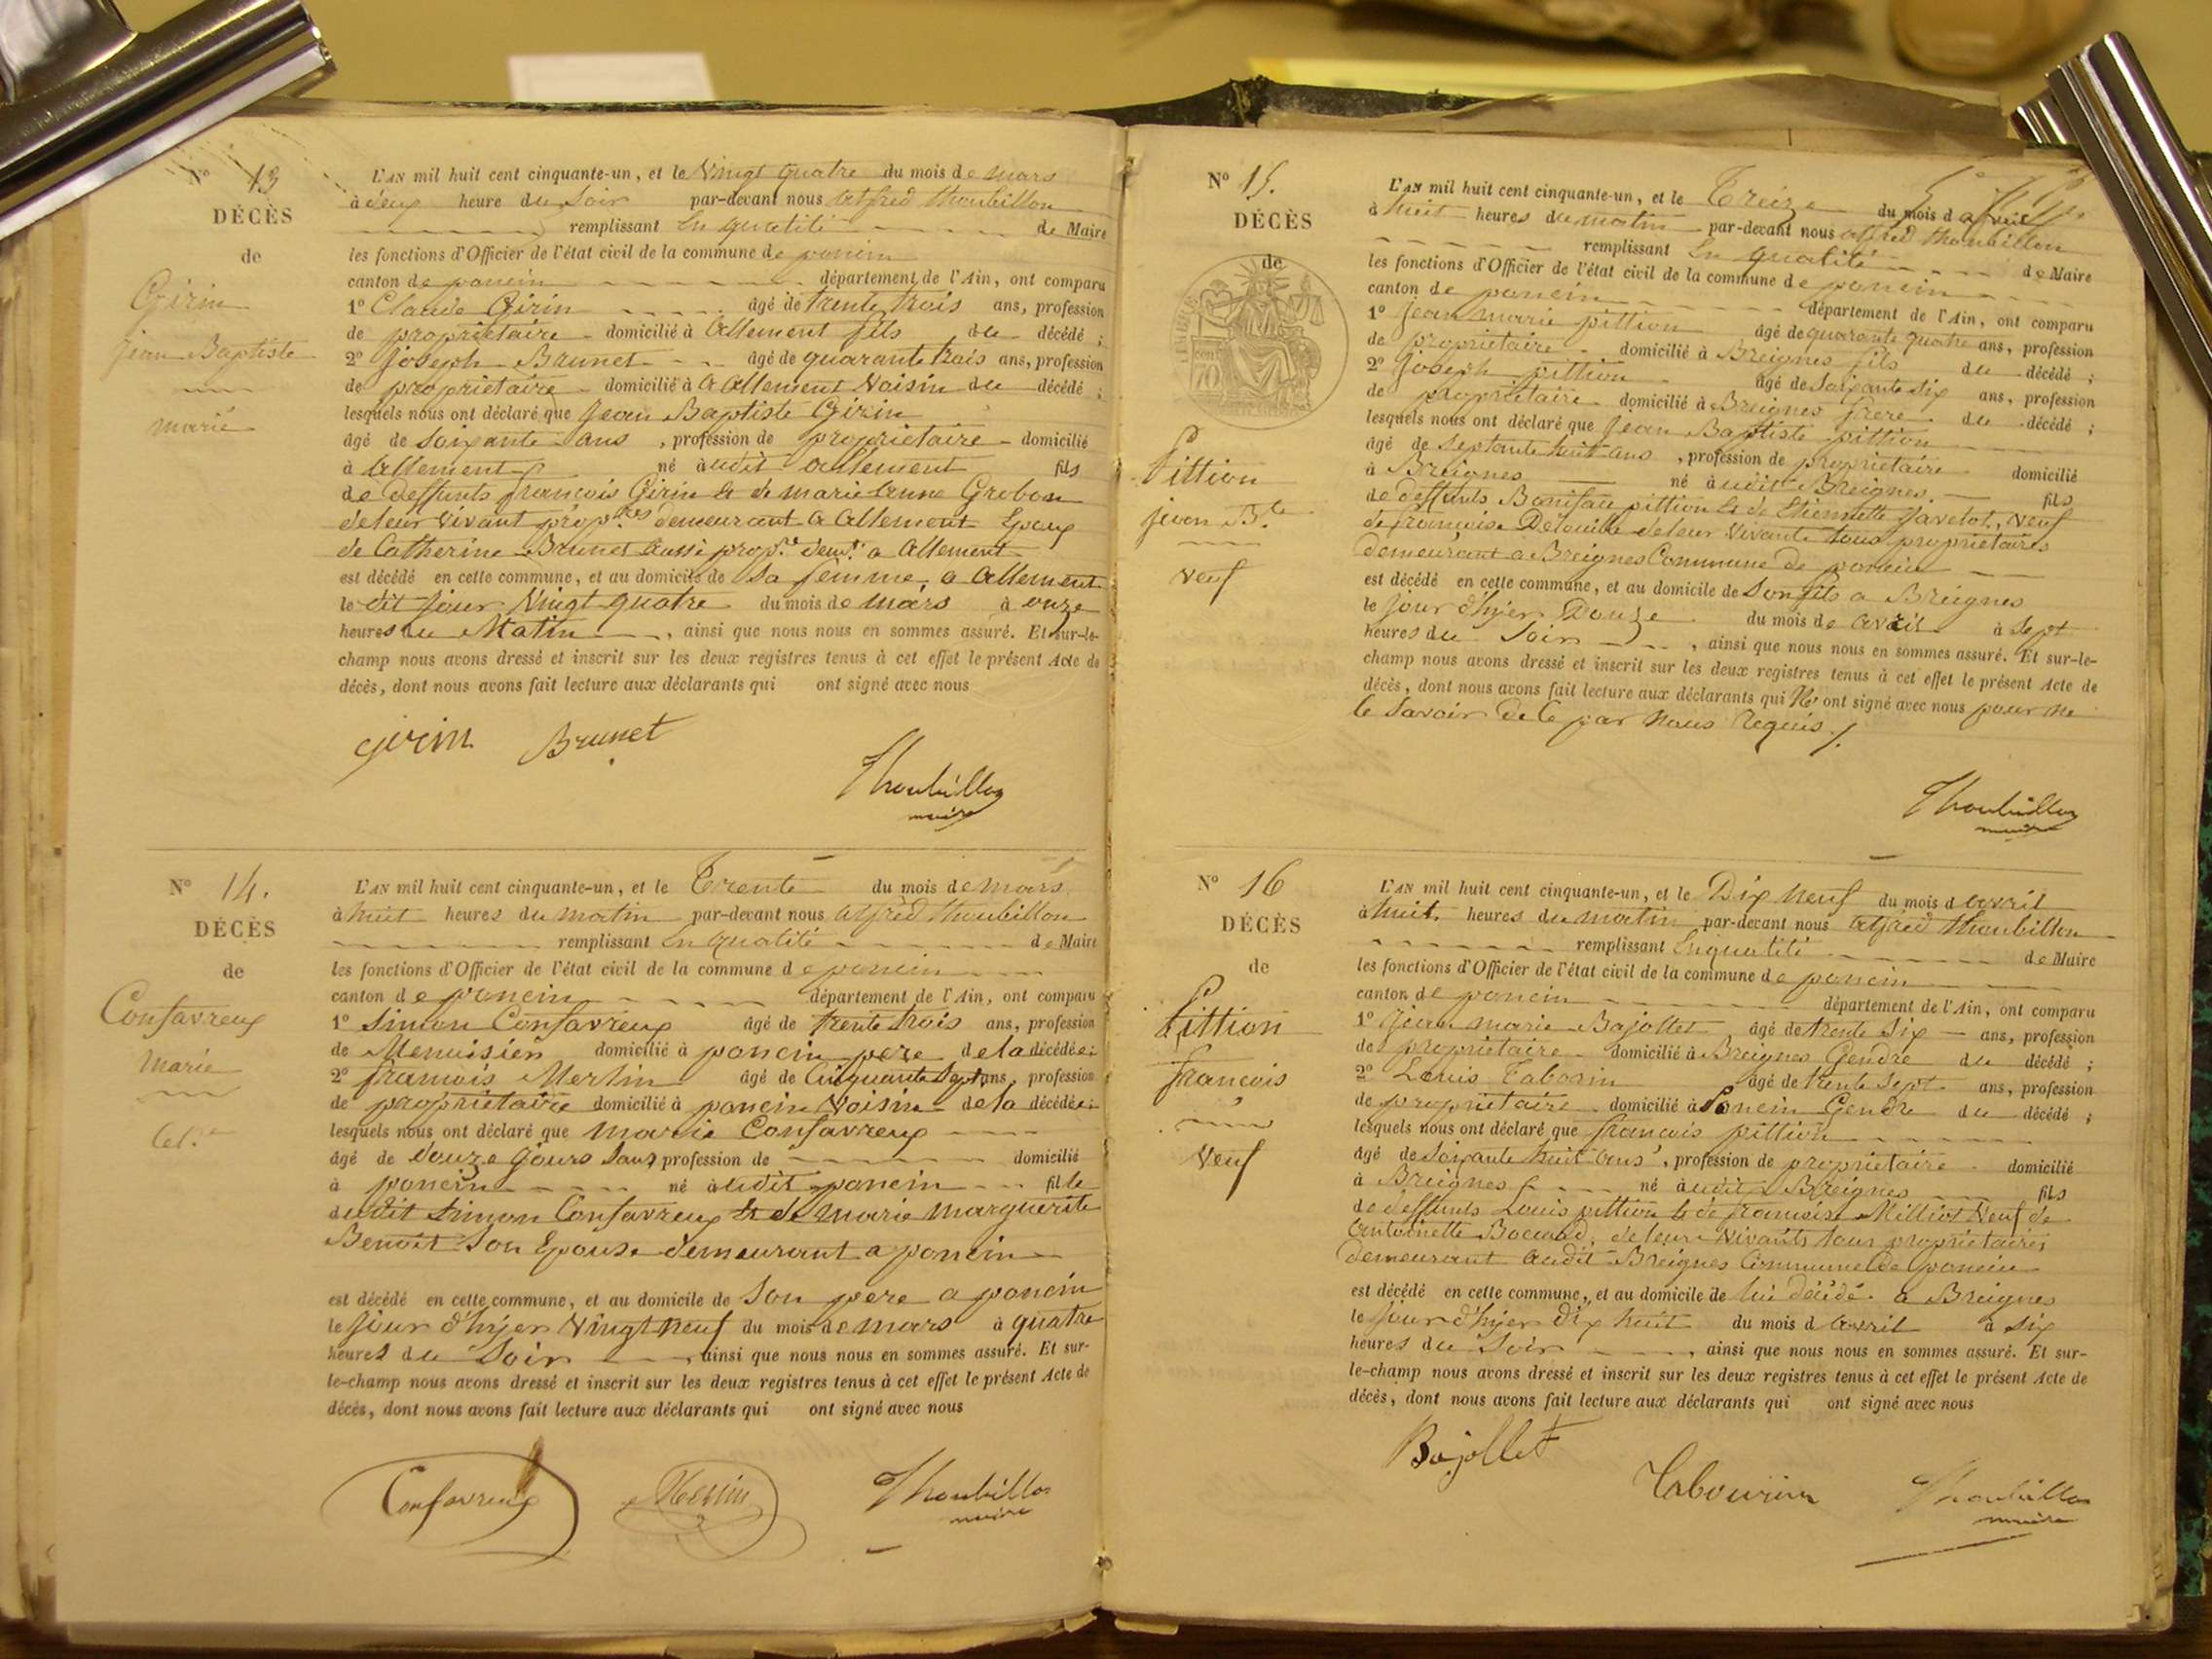 N° 13
DÉCÈS
de
Girin
Jean Baptiste
marié
L'AN mil huit cent cinquante-un, et le Vingt quatre du mois de mars
à deux heure du Soir par-devant nous alfred thoubillon
remplissant En qualité de Maire
les fonctions d'Officier de l'état civil de la commune de poncin
canton de poncin département de l'Ain, ont comparu
1° Claude Girin âgé de trente trois ans, profession
de propriétaire domicilié à allement fils du décédé ;
2° joseph Brunet âgé de quarante trois ans, profession
de propriétaire domicilié à a allement Voisin du décédé ;
lesquels nous ont déclaré que Jean Baptiste Girin
âgé de Soixante ans , profession de propriétaire domicilié
à allement né à udit allement fils
de deffunts francois Girin & de marie anne Grobon
de leur vivant prop.res demeurant a allement Epoux
de Catherine Brunet aussi prop.re dem.t a allement
est décédé en cette commune, et au domicile de Sa femme, a allement
le dit jour Vingt quatre du mois de mars à onze
heures du Matin , ainsi que nous nous en sommes assuré. Et sur-le-
champ nous avons dressé et inscrit sur les deux registres tenus à cet effet le présent Acte de
décès, dont nous avons fait lecture aux déclarants qui ont signé avec nous
girin Brunet
Thoubillon
maire
N° 14.
DÉCÈS
de
Confavreux
Marie
Cel.re
L'AN mil huit cent cinquante-un, et le Trente du mois de mars
à huit heures du matin par-devant nous alfred thoubillon
remplissant En qualité de Maire
les fonctions d'Officier de l'état civil de la commune de poncin
canton de poncin département de l'Ain, ont comparu
1° Simon Confavreux âgé de trente trois ans, profession
de Menuisier domicilié à poncin pere de la décédée ;
2° francois Merlin âgé de Cinquante Sept ans, profession
de propriétaire domicilié à poncin Voisin de la décédée ;
lesquels nous ont déclaré que marie Confavreux
âgé de douze jours Sans profession de domicilié
à poncin né à udit poncin fille
du dit Simon Confavreux & de marie marguerite
Benoit Son Epouse demeurant a poncin
est décédé en cette commune, et au domicile de Son pere a poncin
le jour d'hyer Vingt neuf du mois de mars à quatre
heures du Soir , ainsi que nous nous en sommes assuré. Et sur-
le-champ nous avons dressé et inscrit sur les deux registres tenus à cet effet le présent Acte de
décès, dont nous avons fait lecture aux déclarants qui ont signé avec nous
Confavreux Merlin Thoubillon
maire
N° 15.
DÉCÈS
de
Pittion
jean B.te
Veuf
L'AN mil huit cent cinquante-un, et le Treize du mois d avril
à huit heures du matin par-devant nous alfred thoubillon
remplissant En qualité de Maire
les fonctions d'Officier de l'état civil de la commune de poncin
canton de poncin département de l'Ain, ont comparu
1° Jean marie pittion âgé de quarante quatre ans, profession
de propriétaire domicilié à Breignes fils du décédé ;
2° Joseph pittion âgé de Soixante Six ans, profession
de propriétaire domicilié à Breignes frere du décédé ;
lesquels nous ont déclaré que Jean Baptiste pittion
âgé de Septante huit ans , profession de propriétaire domicilié
à Breignes né à udit Breignes fils
de deffunts Boniface pittion & de Etiennette Javelot, Veuf
de francoise de leur Vivants tous propriétaires
demeurant a Breignes Commune de poncin
est décédé en cette commune, et au domicile de Son fils a Breignes
le jour d'hyer Douze du mois de avril à Sept
heures du Soir , ainsi que nous nous en sommes assuré. Et sur-le-
champ nous avons dressé et inscrit sur les deux registres tenus à cet effet le présent Acte de
décès, dont nous avons fait lecture aux déclarants qui N' ont signé avec nous pour ne
le Savoir de Ce par nous Requis /.
Thoubillon
maire
N° 16
DÉCÈS
de
Pittion
francois
Veuf
L'AN mil huit cent cinquante-un, et le Dix neuf du mois d avril
à huit heures du matin par-devant nous alfred thoubillon
remplissant En qualité de Maire
les fonctions d'Officier de l'état civil de la commune de poncin
canton de poncin département de l'Ain, ont comparu
1° Jean marie Bajollet âgé de trente Six ans, profession
de propriétaire domicilié à Breignes Gendre du décédé ;
2° Louis Taborin âgé de trente Sept ans, profession
de propriétaire domicilié à Poncin Gendre du décédé ;
lesquels nous ont déclaré que francois pittion
âgé de Soixante huit ans , profession de propriétaire domicilié
à Breignes né à udit Breignes fils
de deffunts Louis pittion & de francoise Milliot Veuf de
antoinette Bocand, de leur Vivants tous propriétaires
demeurant audit Breignes Commune de poncin
est décédé en cette commune, et au domicile de lui décédé a Breignes
le jour d'hyer dix huit du mois d avril à Six
heures du Soir , ainsi que nous nous en sommes assuré. Et sur-
le-champ nous avons dressé et inscrit sur les deux registres tenus à cet effet le présent Acte de
décès, dont nous avons fait lecture aux déclarants qui ont signé avec nous
Bajollet
Tabourin Thoubillon
maire